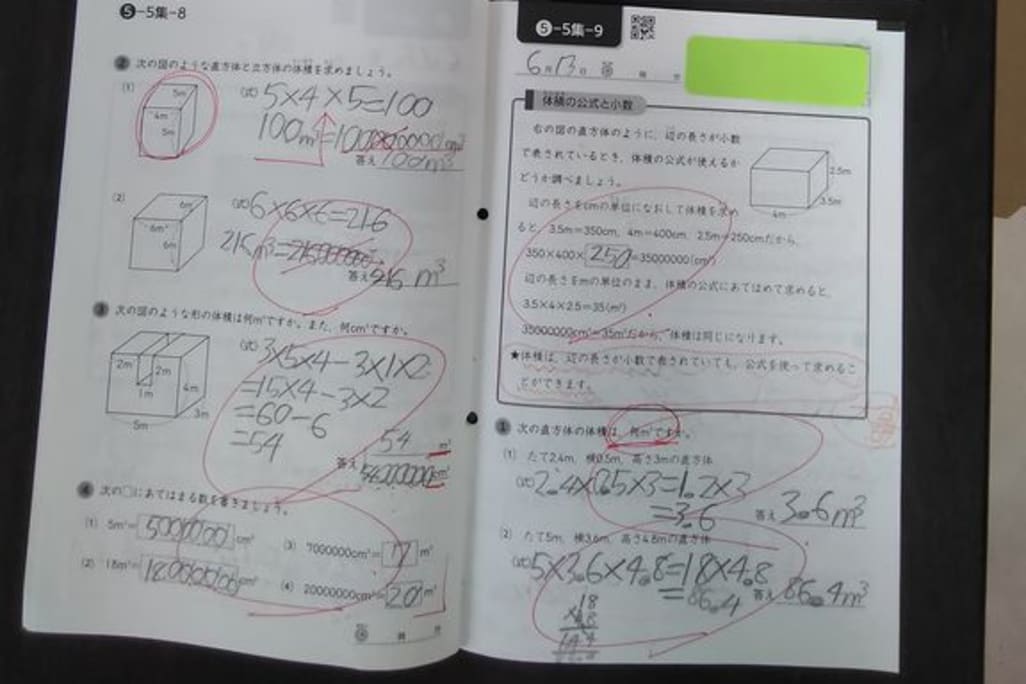 5-5集-8
2 次の図のような直方体と立方体の体積を求めましょう。
(1)
5m
4m
5m
(式) 5×4×5=100
100m³=100000000cm³
答え 100m³
(2)
6m
6m
6m
(式) 6×6×6=216
答え 216 m³
3 次の図のような形の体積は何m³ですか。また、何cm³ですか。
2m
2m
1m
4m
3m
5m
(式) 3×5×4-3×1×2
=15×4-3×2
=60-6
=54
54 m³
答え 54000000cm³
4 次の□にあてはまる数を書きましょう。
(1) 5m³=5000000cm³
(2) 18m³=18000000cm³
(3) 7000000cm³= m³
(4) 20000000cm³=20m³
5-5集-9
6月13日
体積の公式と小数
右の図の直方体のように、辺の長さが小数
で表されているとき、体積の公式が使えるか
どうか調べましょう。
2.5m
3.5m
4m
辺の長さをcmの単位になおして体積を求め
ると、3.5m=350cm、4m=400cm、2.5m=250cmだから、
350×400×250=35000000(cm³)
辺の長さをmの単位のまま、体積の公式にあてはめて求めると、
3.5×4×2.5=35(m³)
35000000cm³=35m³だから、体積は同じになります。
★体積は、辺の長さが小数で表されていても、公式を使って求めるこ
とができます。
1 次の直方体の体積は、何m³ですか。
(1) たて2.4m、横0.5m、高さ3mの直方体
(式) 2.4×0.5×3=1.2×3
=3.6
答え 3.6m³
(2) たて5m、横3.6m、高さ4.8mの直方体
(式) 5×3.6×4.8=18×4.8
=86.4
答え 86.4m³
18
×4.8